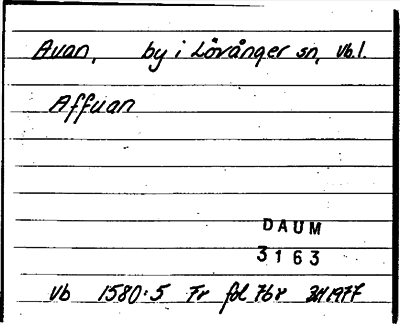 Avan, by i Lövånger sn, Vb.l.
Affuan
DAUM
3163
Vb 1580:5 Fr fol 76r 1977